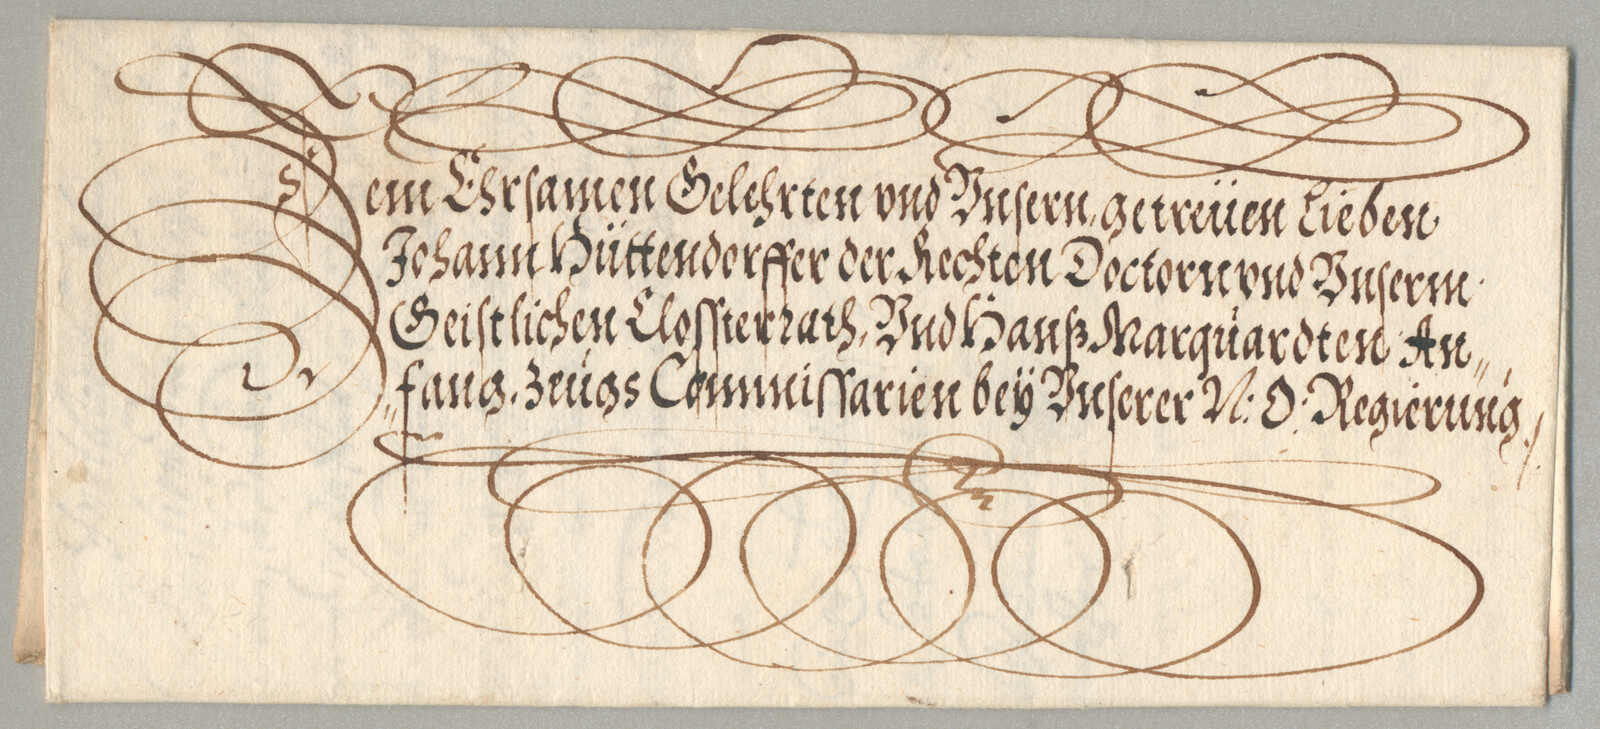 Dem Ehrsamen Gelehrten vnd Vnsern getreüen Lieben
Johann Hüttendorffer der Rechten Doctorn vnd Vnserm
Geistlichen Closster rath, Vnd Hanß Marquardten An„
„fang, Zeügs Commissarien beÿ Vnserer N: Ö: Regierung